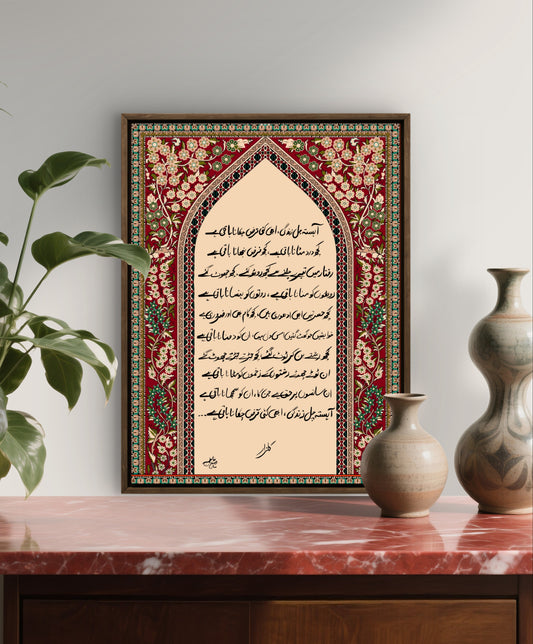 آہستہ چل زندگی، ابھی کئی قرض چکانا باقی ہے
کچھ درد مٹانا باقی ہے، کچھ فرض نبھانا باقی ہے
رفتار میں تیرے چلنے سے کچھ روٹھ گئے، کچھ چھوٹ گئے
روٹھوں کو منانا باقی ہے، روتوں کو ہنسانا باقی ہے
کچھ حسرتیں ابھی ادھوری ہیں، کچھ کام بھی اور ضروری ہے
خواہشیں جو گھٹ گئیں اس دل میں، ان کو دفنانا باقی ہے
کچھ رشتے بن کر ٹوٹ گئے، کچھ جڑتے جڑتے چھوٹ گئے
ان ٹوٹے چھوٹے رشتوں کے زخموں کو مٹانا باقی ہے
ان سانسوں پر حق ہے جن کا، ان کو سمجھانا باقی ہے
آہستہ چل زندگی، ابھی کئی قرض چکانا باقی ہے...
گلزار